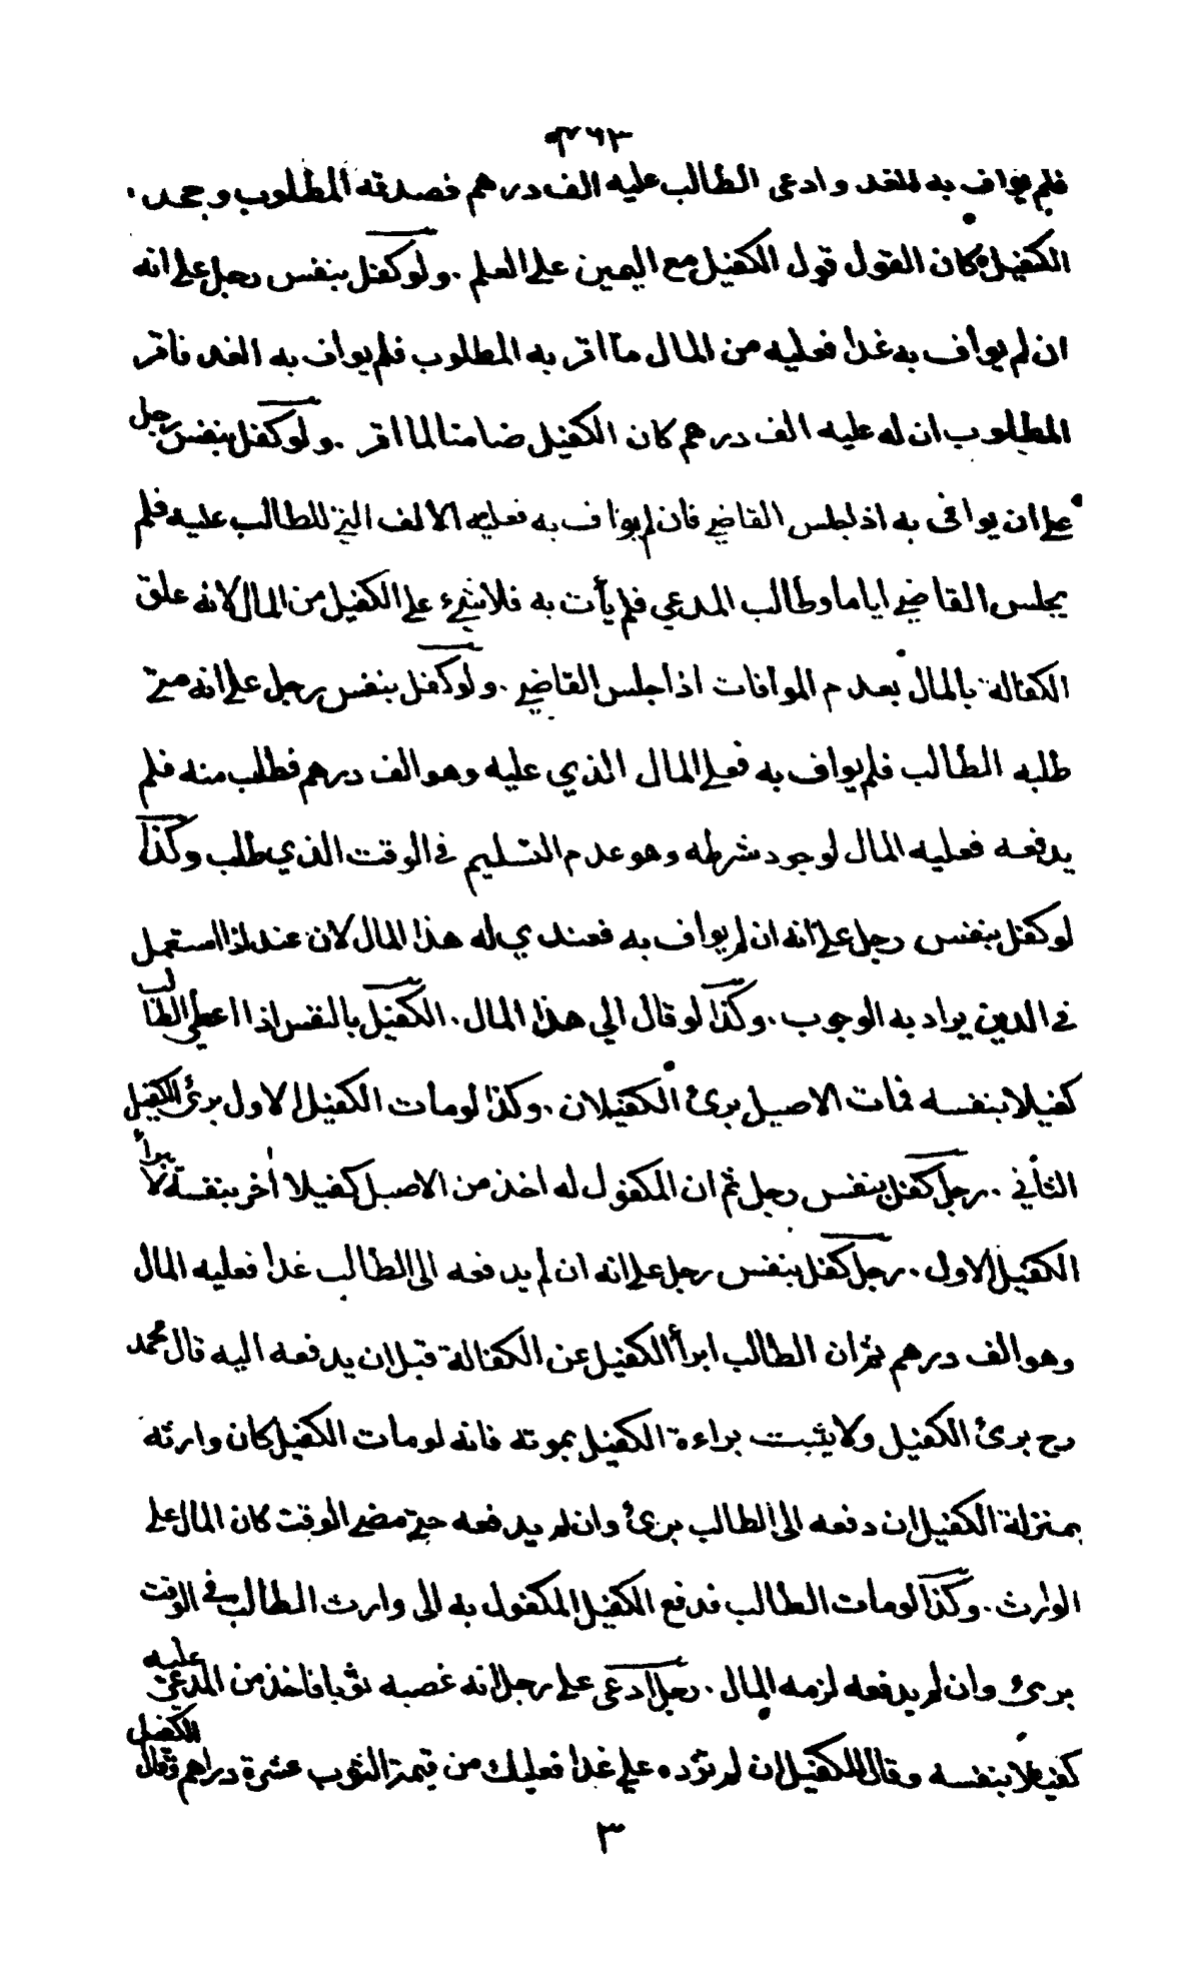 ٣٦٣
فلم يواف به للغد وادعى الطالب عليه الف درهم فصدقه المطلوب وجحد
الكفيل كان القول قول الكفيل مع اليمين على العلم . ولو كفل بنفس رجل على انه
ان لم يواف به غدا فعليه من المال ما اقر به المطلوب فلم يواف به الغد فاقر
المطلوب ان له عليه الف درهم كان الكفيل ضامنا لما اقر . ولو كفل بنفس رجل
على ان يوافى به اذا جلس القاضي فان لم يواف به فعليه الالف التي للطالب عليه فلم
يجلس القاضي اياما وطالب المدعي فلم يأت به فلا شيء على الكفيل من المال لانه علق
الكفالة بالمال بعدم الموافات اذا جلس القاضي . ولو كفل بنفس رجل على انه متى
طلبه الطالب فلم يواف به فعلي المال الذي عليه وهو الف درهم فطلب منه فلم
يدفعه فعليه المال لوجود شرطه وهو عدم التسليم في الوقت الذي طلب وكذا
لو كفل بنفس رجل على انه ان لم يواف به فعندي له هذا المال لان عند اذا استعمل
في الدين يراد به الوجوب . وكذا لو قال الي هذا المال . الكفيل بالنفس اذا اعطى الطالب
كفيلا بنفسه فمات الاصيل برئ الكفيلان . وكذا لو مات الكفيل الاول برئ الكفيل
الثاني . رجل كفل بنفس رجل ثم ان المكفول له اخذ من الاصيل كفيلا اخر بنفسه لا يبرأ
الكفيل الاول . رجل كفل بنفس رجل على انه ان لم يدفعه الى الطالب غدا فعليه المال
وهو الف درهم ثم ان الطالب ابرأ الكفيل عن الكفالة قبل ان يدفعه اليه قال محمد
رح برئ الكفيل ولا يثبت براءة الكفيل بموته فانه لو مات الكفيل كان وارثه
بمنزلة الكفيل ان دفعه الى الطالب برئ وان لم يدفعه حتى مضى الوقت كان المال على
الوارث . وكذا لو مات الطالب فدفع الكفيل المكفول به الى وارث الطالب في الوقت
برئ وان لم يدفعه لزمه المال . رجل ادعى على رجل انه غصبه ثوبا فاخذ من المدعى عليه
كفيلا بنفسه وقال للكفيل ان لم تؤده علي غدا فعليك من قيمة الثوب عشرة دراهم وقال الكفيل
٣